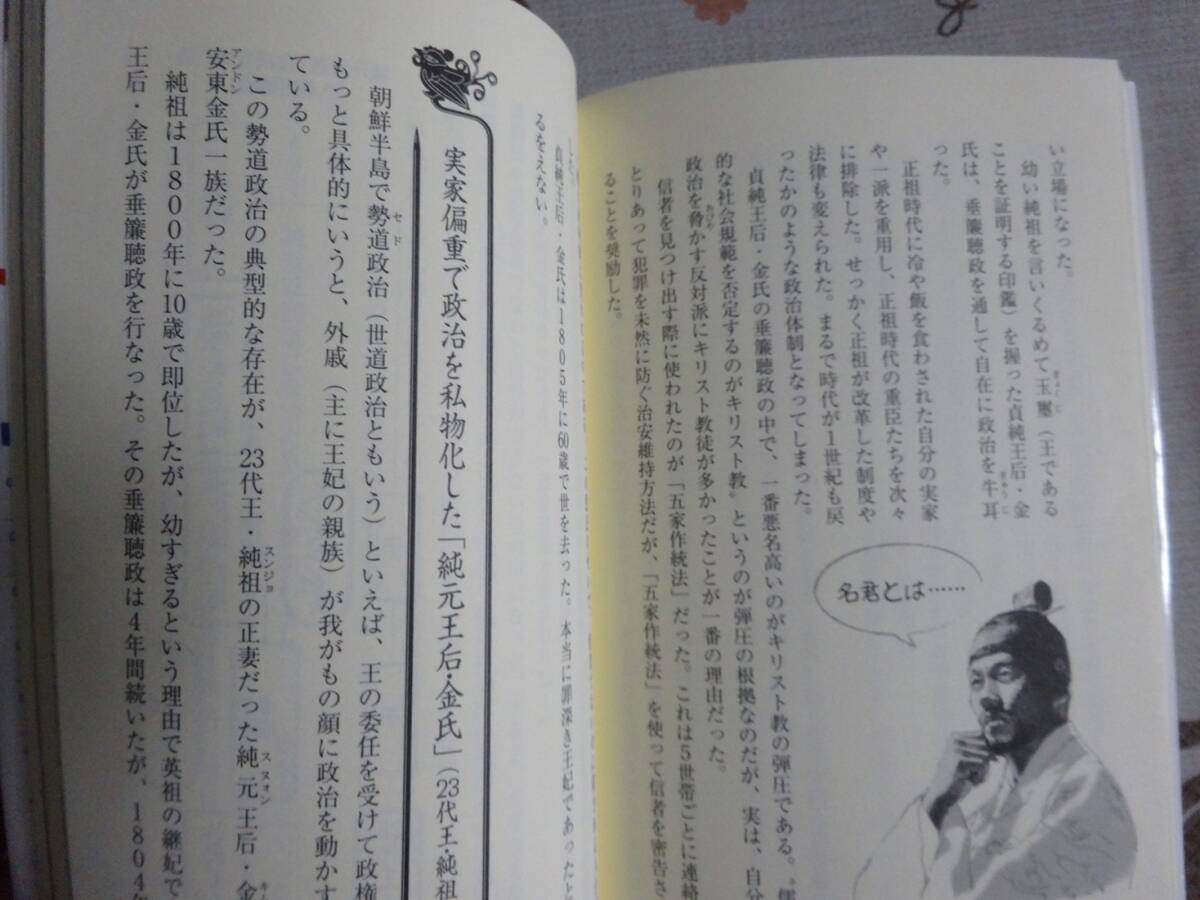 い立場になった。
幼い純祖を言いくるめて玉璽（王である
ことを証明する印鑑）を握った貞純王后・金
氏は、垂簾聴政を通して自在に政治を牛耳
った。
正祖時代に冷や飯を食わされた自分の実家
や一派を重用し、正祖時代の重臣たちを次々
に排除した。せっかく正祖が改革した制度や
法律も変えられた。まるで時代が1世紀も戻
ったかのような政治体制となってしまった。
貞純王后・金氏の垂簾聴政の中で、一番悪名高いのがキリスト教の弾圧である。〝儒
的な社会規範を否定するのがキリスト教〟というのが弾圧の根拠なのだが、実は、自分
政治を脅かす反対派にキリスト教徒が多かったことが一番の理由だった。
信者を見つけ出す際に使われたのが「五家作統法」だった。これは5世帯ごとに連絡
とりあって犯罪を未然に防ぐ治安維持方法だが、「五家作統法」を使って信者を密告さ
ることを奨励した。
名君とは……
貞純王后・金氏は1805年に60歳で世を去った。本当に罪深き王妃であったと
るをえない。
実家偏重で政治を私物化した「純元王后・金氏」（23代王・純祖
朝鮮半島で勢道政治（世道政治ともいう）といえば、王の委任を受けて政権
もっと具体的にいうと、外戚（主に王妃の親族）が我がもの顔に政治を動かす
ている。
この勢道政治の典型的な存在が、23代王・純祖の正妻だった純元王后・金
安東金氏一族だった。
純祖は1800年に10歳で即位したが、幼すぎるという理由で英祖の継妃で
王后・金氏が垂簾聴政を行なった。その垂簾聴政は4年間続いたが、1804年